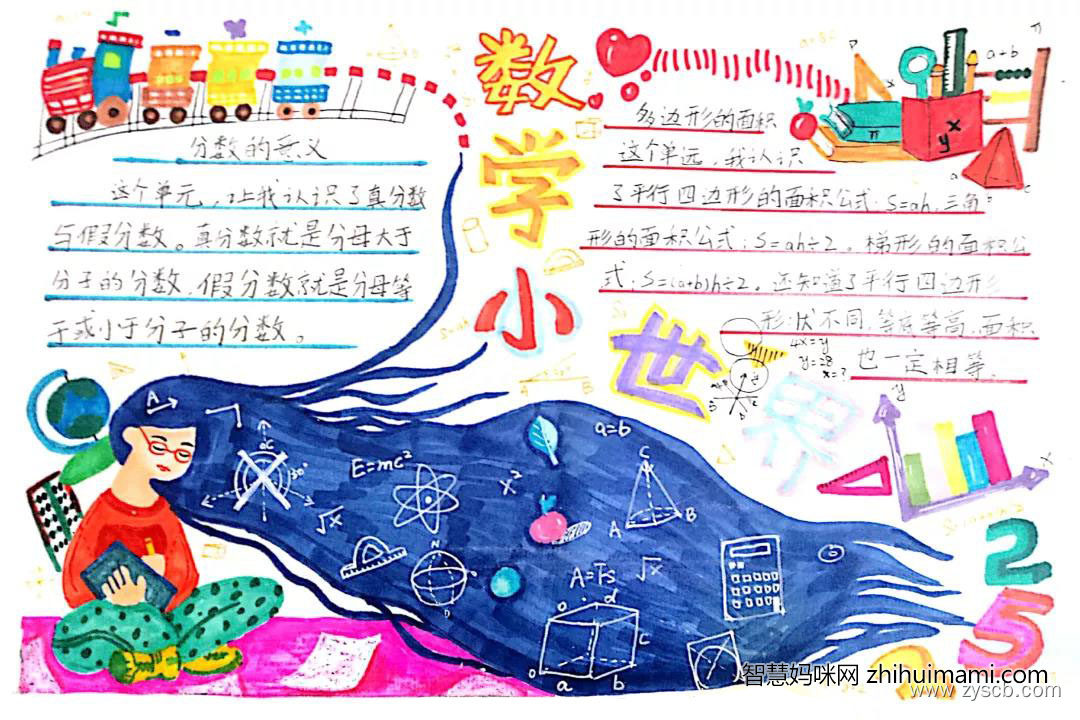 数学小世界
分数的意义
这个单元，让我认识了真分数
与假分数。真分数就是分母大于
分子的分数，假分数就是分母等
于或小于分子的分数。
多边形的面积
这个单远，我认识
了平行四边形的面积公式：S=ah，三角
形的面积公式：S=ah÷2。梯形的面积公
式：S=(a+b)h÷2。还知道了平行四边形
形状不同，等底等高，面积
也一定相等。
a+b
π
y x
a
c
4x=y
y=28
x=?
y
x
A
E=mc²
√x
x²
a=b
C
A
B
A=Fs
√x
N
a
b
c
d
o
o
2
5
智慧妈咪网 zhihuimami.com
www.zyscb.com